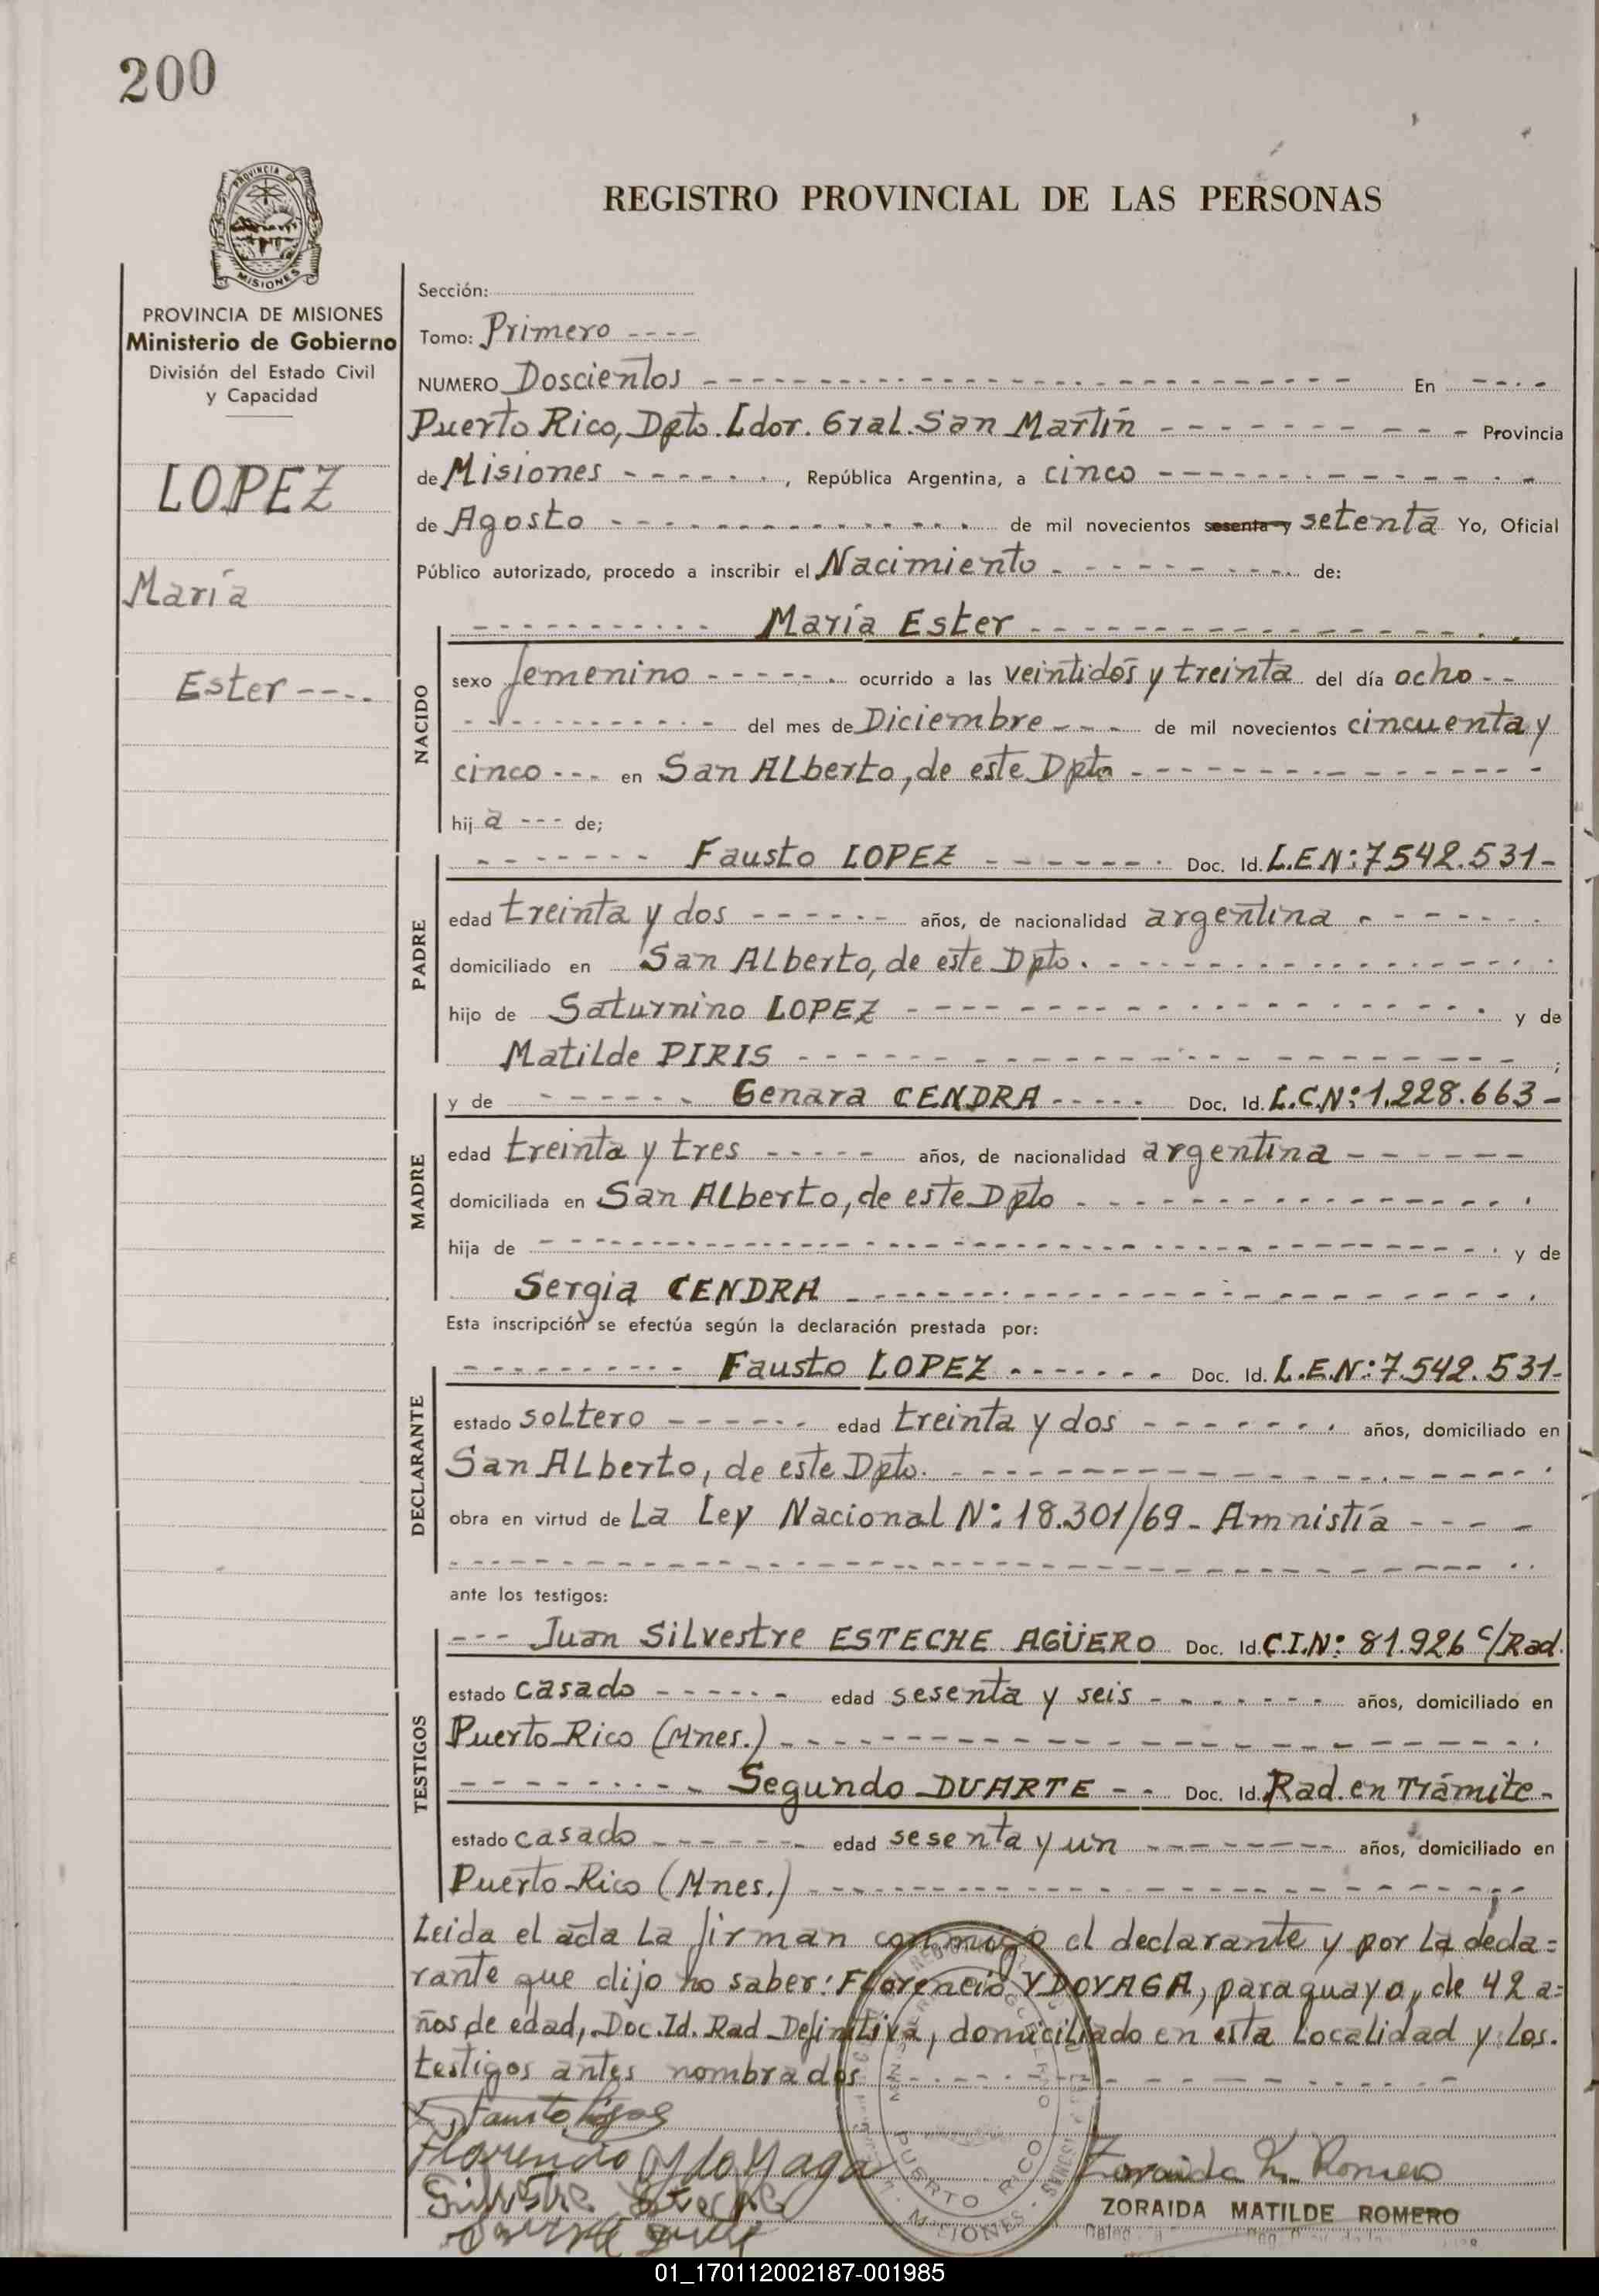 200
PROVINCIA DE
MISIONES
REGISTRO PROVINCIAL DE LAS PERSONAS
PROVINCIA DE MISIONES
Ministerio de Gobierno
División del Estado Civil
y Capacidad
LOPEZ
María
Ester ----
Sección:
Tomo: Primero ----
NUMERO Doscientos ---- En ----
Puerto Rico, Dpto. Ldor. Gral. San Martín ---- Provincia
de Misiones ----, República Argentina, a cinco ----
de Agosto ---- de mil novecientos sesenta y setenta Yo, Oficial
Público autorizado, procedo a inscribir el Nacimiento ---- de:
NACIDO
---- María Ester ----
sexo femenino ---- ocurrido a las veintidós y treinta del día ocho --
---- del mes de Diciembre ---- de mil novecientos cincuenta y
cinco --- en San Alberto, de este Dpto ----
hij a --- de;
PADRE
---- Fausto LOPEZ ---- Doc. Id. L.E.Nº: 7542.531-
edad treinta y dos ---- años, de nacionalidad argentina ----
domiciliado en San Alberto, de este Dpto. ----
hijo de Saturnino LOPEZ ---- y de
Matilde PIRIS ---- ;
MADRE
y de ---- Genara CENDRA ---- Doc. Id. L.C.Nº: 1.228.663-
edad treinta y tres ---- años, de nacionalidad argentina ----
domiciliada en San Alberto, de este Dpto ----
hija de ---- y de
Sergia CENDRA ----
Esta inscripción se efectúa según la declaración prestada por:
DECLARANTE
---- Fausto LOPEZ ---- Doc. Id. L.E.Nº: 7.542.531-
estado soltero ---- edad treinta y dos ---- años, domiciliado en
San Alberto, de este Dpto. ----
obra en virtud de La Ley Nacional Nº: 18.301/69 - Amnistía ----
ante los testigos:
TESTIGOS
--- Juan Silvestre ESTECHE AGÜERO Doc. Id. C.I.Nº: 81.926 c/Rad.
estado casado ---- edad sesenta y seis ---- años, domiciliado en
Puerto Rico (Mnes.) ----
---- Segundo DUARTE -- Doc. Id. Rad. en Trámite -
estado casado ---- edad sesenta y un ---- años, domiciliado en
Puerto Rico (Mnes.) ----
Leida el acta la firman conmigo el declarante y por la decla=
rante que dijo no saber: Florencio YDOYAGA, paraguayo, de 42 a=
ños de edad, Doc. Id. Rad. Definitiva, domiciliado en esta localidad y los
testigos antes nombrados ----
Fausto Lopez
Florencio Ydoyaga
Silvestre Esteche
Zoraida M. Romero
PUERTO RICO
MISIONES
ZORAIDA MATILDE ROMERO
01_170112002187-001985